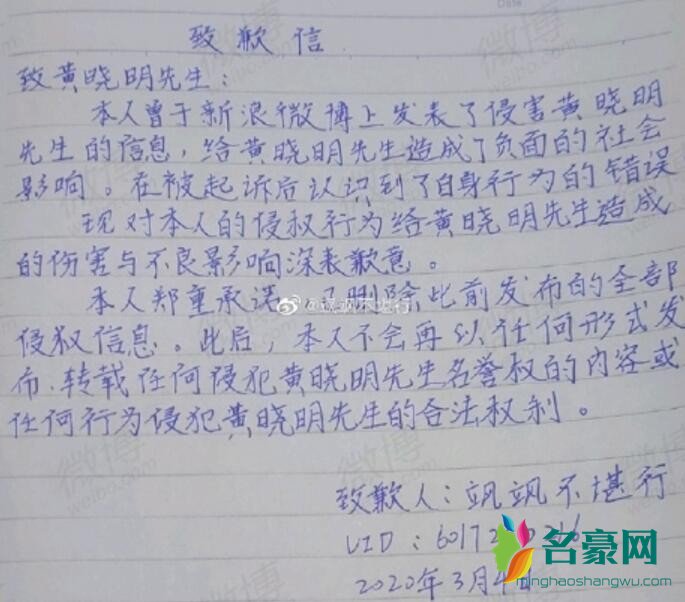 Date
致歉信
致黄晓明先生：
本人曾于新浪微博上发表了侵害黄晓明
先生的信息，给黄晓明先生造成了负面的社会
影响。在被起诉后认识到了自身行为的错误
现对本人的侵权行为给黄晓明先生造成
的伤害与不良影响深表歉意。
本人郑重承诺 删除此前发布的全部
侵权信息。此后，本人不会再以任何形式发
布、转载任何侵犯黄晓明先生名誉权的内容或
任何行为侵犯黄晓明先生的合法权利。
致歉人：飒飒不堪行
UID：60172
2020年3月4日
@飒飒不堪行
微博
weibo.com
名豪网
minghaoshangwu.com